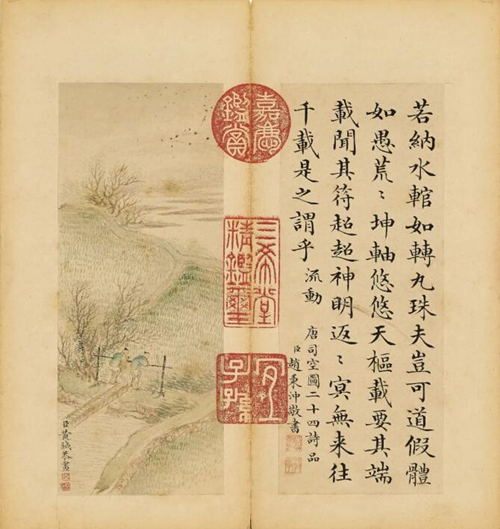 若納水輨如轉九珠夫豈可道假體
如愚荒〻坤軸悠悠天樞載要其端
載聞其符超超神明返〻冥無来往
千載是之謂乎 流動
唐司空圖二十四詩品
臣趙秉沖敬書
嘉慶鑑賞
三希堂精鑑璽
宜子孫
臣黃鉞恭畫